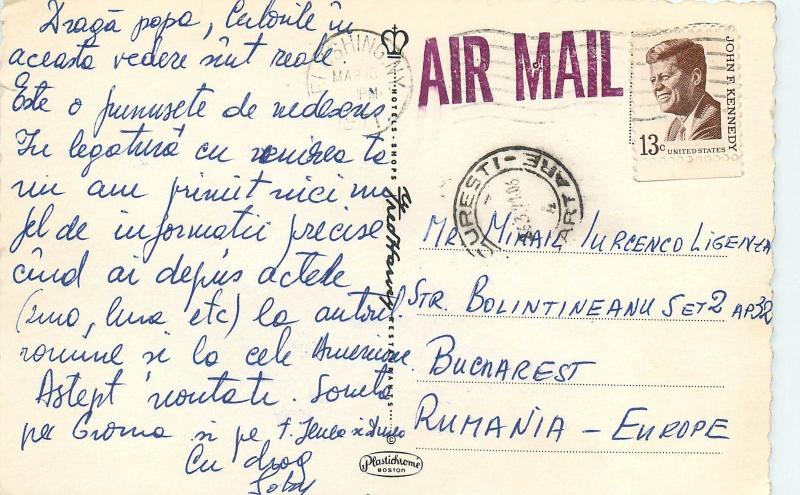 Dragă papa, Culorile în
această vedere sînt reale
Este o frumusețe de nedescris
În legatură cu venirea ta
nu am primit nici un
fel de informatii precise
cînd ai depus actele
(ziua, luna etc) la autorit.
romîne si la cele Americane
Astept noutati. Saruta
pe si pe
Cu drag
FLUSHING N.Y.
MAR
PM
AIR MAIL
JOHN F. KENNEDY
13c UNITED STATES
CARTARE
HOTELS · SHOPS
Fred Harvey
RESTAURANTS
Mr. MIHAIL IURCENCO LIGENZA
STR. BOLINTINEANU SET 2 AP 32
BUCHAREST
RUMANIA – EUROPE
Plastichrome
BOSTON